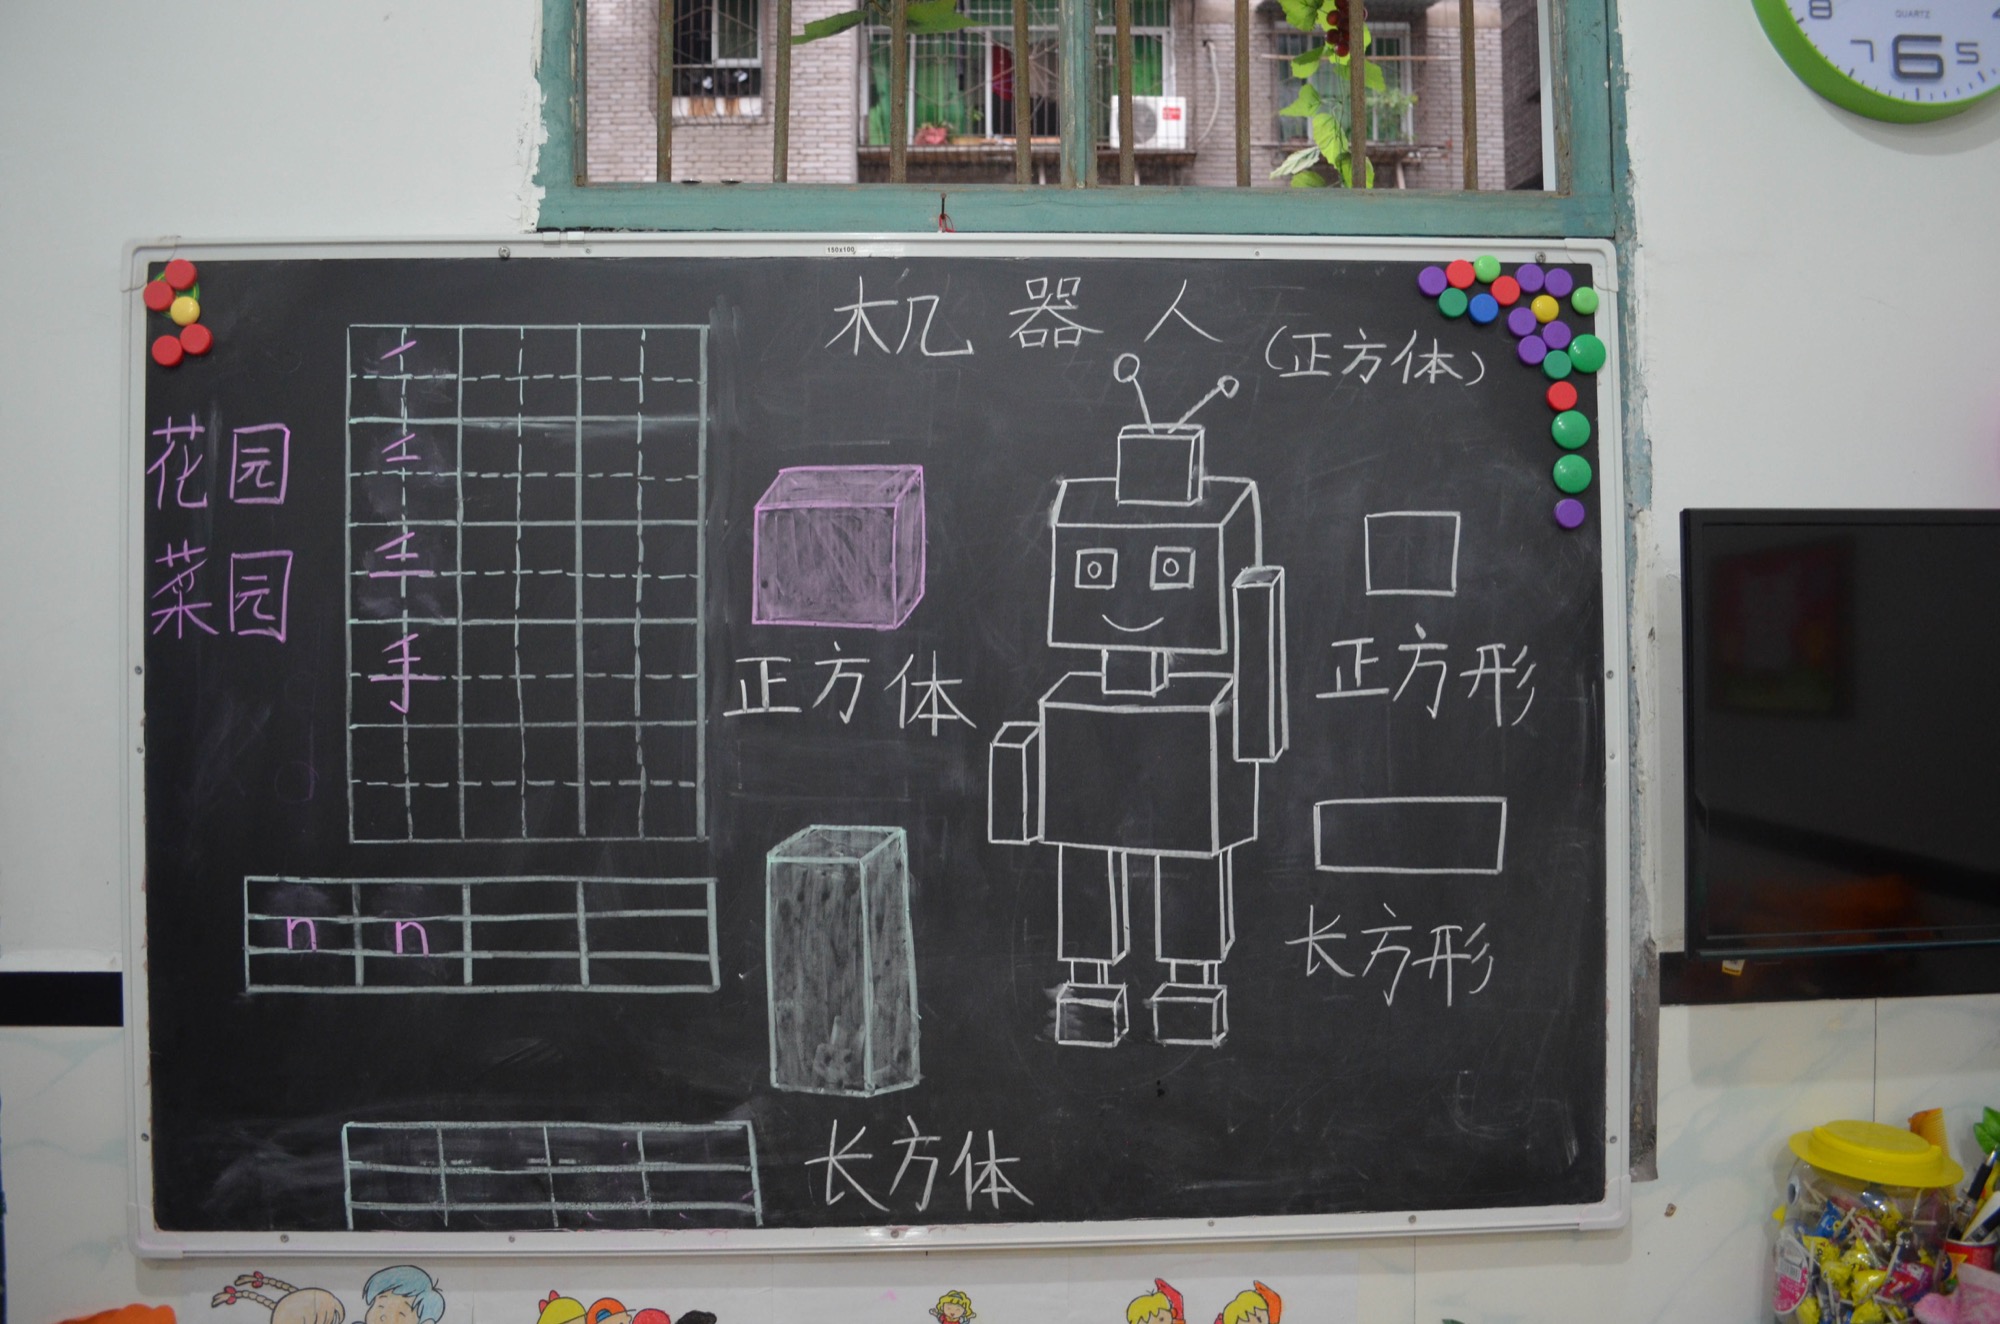 8
QUARTZ
7 6 5
150x100
机器人
(正方体)
花园
菜园
手
正方体
正方形
n n
长方形
长方体